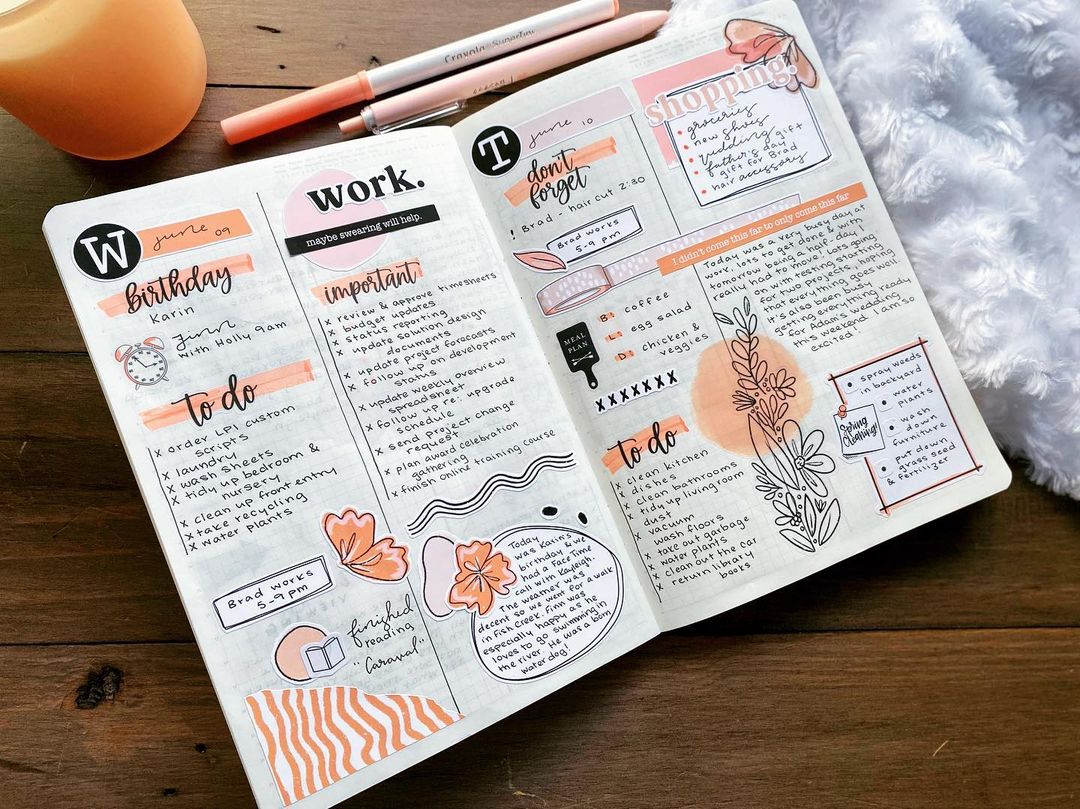 Crayola
W
june 09
Birthday
Karin
With Holly 9am
to do
x order LPI custom
scripts
x laundry
x wash sheets
x tidy up bedroom &
nursery
x clean up front entry
x take recycling
x water plants
Brad works
5-9 pm
finished
reading
"Caraval"
work.
maybe swearing will help.
important
x review & approve timesheets
x budget updates
x status reporting
x update solution design
documents
x update project forecasts
x follow up on development
status
x update weekly overview
spreadsheet
x follow up re: upgrade
schedule
x send project change
request
x plan award celebration
gathering
x finish online training course
Today
was Karin's
birthday & we
had a FaceTime
call with Kayleigh.
The weather was
decent so we went for a walk
in Fish Creek. Finn was
especially happy as he
loves to go swimming in
the river. He was a born
water dog!
T
june 10
don't
forget
! Brad - hair cut 2:30
Brad works
5-9 pm
MEAL
PLAN
B: coffee
L: egg salad
D: chicken &
veggies
xxxxxxx
to do
x clean kitchen
x dishes
x clean bathrooms
x tidy up living room
x dust
x vacuum
x wash floors
x take out garbage
x water plants
x clean out the car
x return library
books
shopping.
• groceries
• new shoes
• wedding gift
• father's day
gift for Brad
• hair accessory
I didn't come this far to only come this far
Today was a very busy day at
work. Lots to get done & with
tomorrow being a half-day I
really had to move! Lots going
on with testing starting
for two projects, hoping
that everything goes well.
It's also been busy
getting everything ready
for Adam's wedding
this weekend. I am so
excited!
Spring
Cleaning!
• spray weeds
in backyard
• water
plants
• wash
down
furniture
• put down
grass seed
& fertilizer